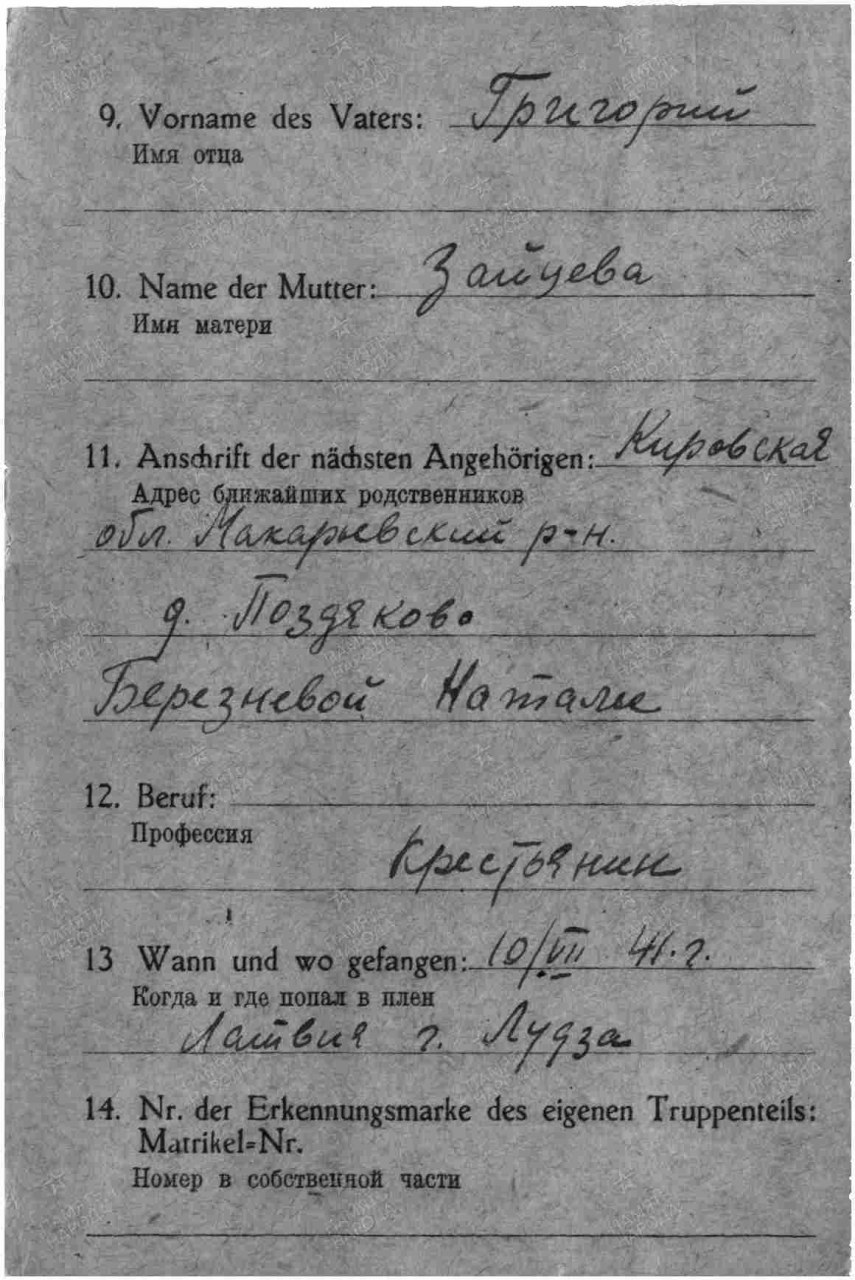 9. Vorname des Vaters: Григорий
Имя отца
10. Name der Mutter: Зайцева
Имя матери
11. Anschrift der nächsten Angehörigen: Кировская
Адрес ближайших родственников
обл. Макарьевский р-н.
д. Поздяково
Березневой Натали
12. Beruf:
Профессия
Крестьянин
13 Wann und wo gefangen: 10/VII 41.г.
Когда и где попал в плен
Латвия г. Лудза
14. Nr. der Erkennungsmarke des eigenen Truppenteils:
Matrikel-Nr.
Номер в собственной части